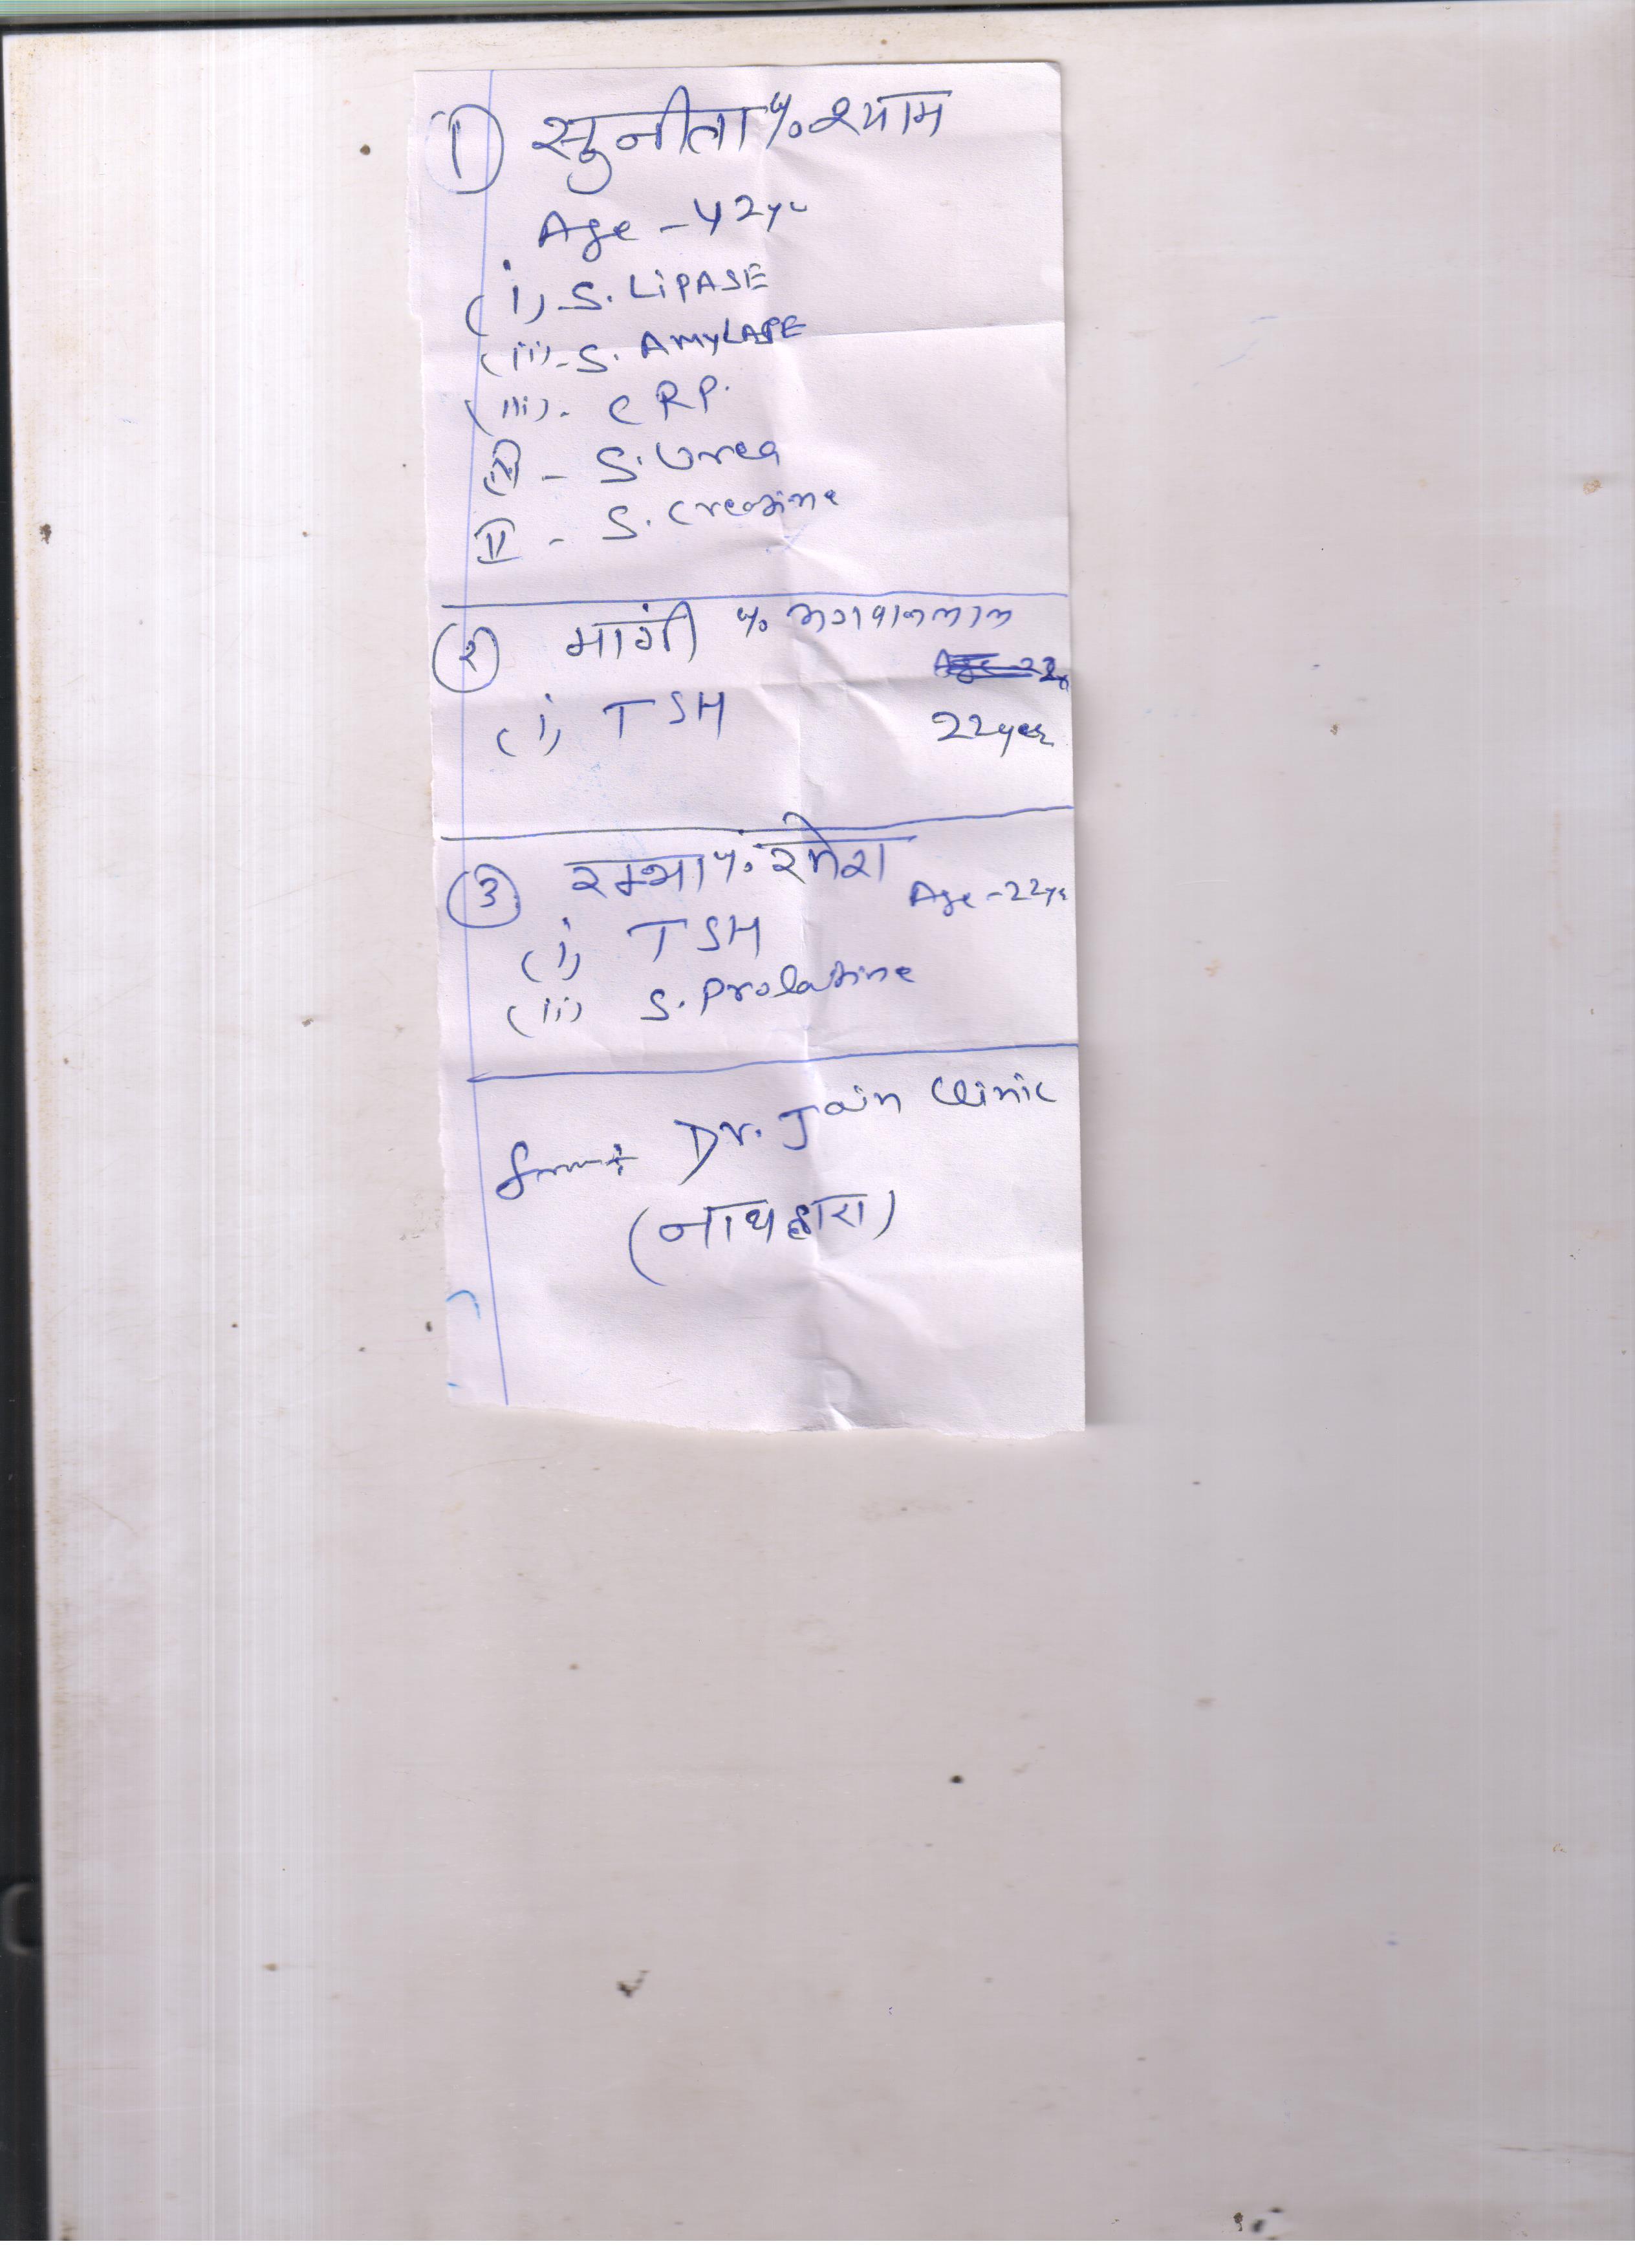 ① सुनीता w/o श्याम
Age - 42yr
(i) S. LiPASE
(ii) - S. AMYLASE
(iii) - CRP.
- S. Urea
- S. Creatine
② मांगी w/o भगवानलाल
22year
(i) TSH
③ रम्भा w/o रमेश
Age - 22yr
(i) TSH
(ii) S. Prolatine
from Dr. Jain Clinic
(नाथद्वारा)